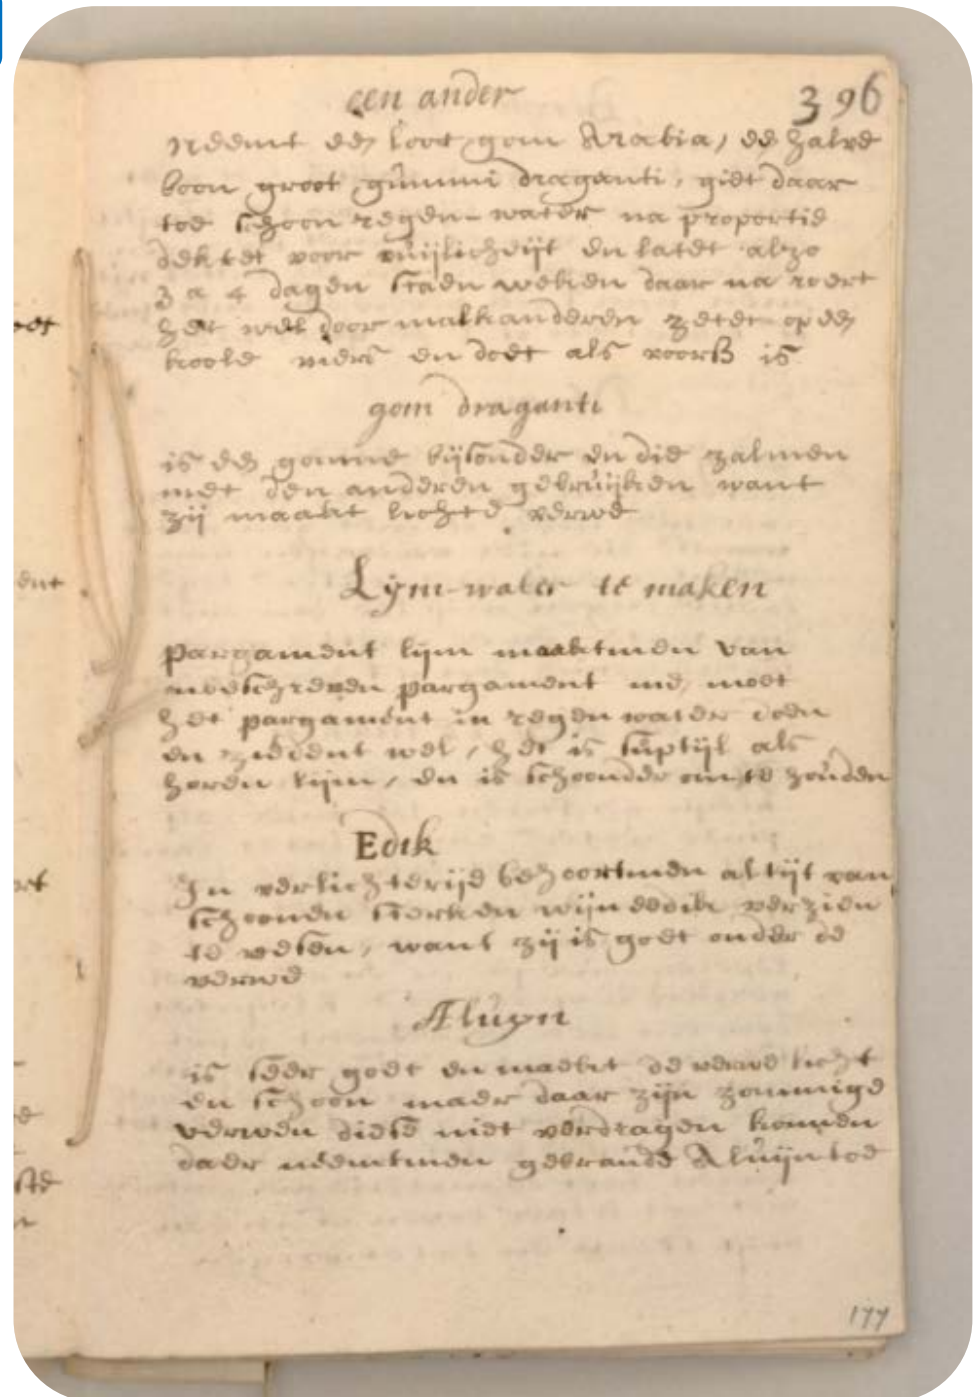 een ander
396
Neemt een loot gom Arabia, een halve
boon groot gummi draganti, giet daar
toe schoon regen-water na proportie
dektet voor vuijlicheijt en latet alzo
3 a 4 dagen staen weken daar na roert
het wel door malkanderen zetet op een
koole viers en doet als voorß is
gom draganti
is een gomme bijsonder en die zalmen
met den anderen gebruijken want
zij maakt lichte verwe
Lijm-water te maken
pargament lijm maaktmen van
pargament moet
het pargament in regen water doen
en ziedent wel, het is suptijl als
horen lijm, en is schoonder om te houden
Edik
In verlichterije behoortmen altijt van
schoonen stercken wijn eedik verzien
te wesen, want zij is goet onder de
verwe
Aluyn
is seer goet en maekt de verwe licht
en schoon maer daar zijn zommige
verwen diese niet verdragen konnen
daer neemtmen gebrande Aluijn toe
177